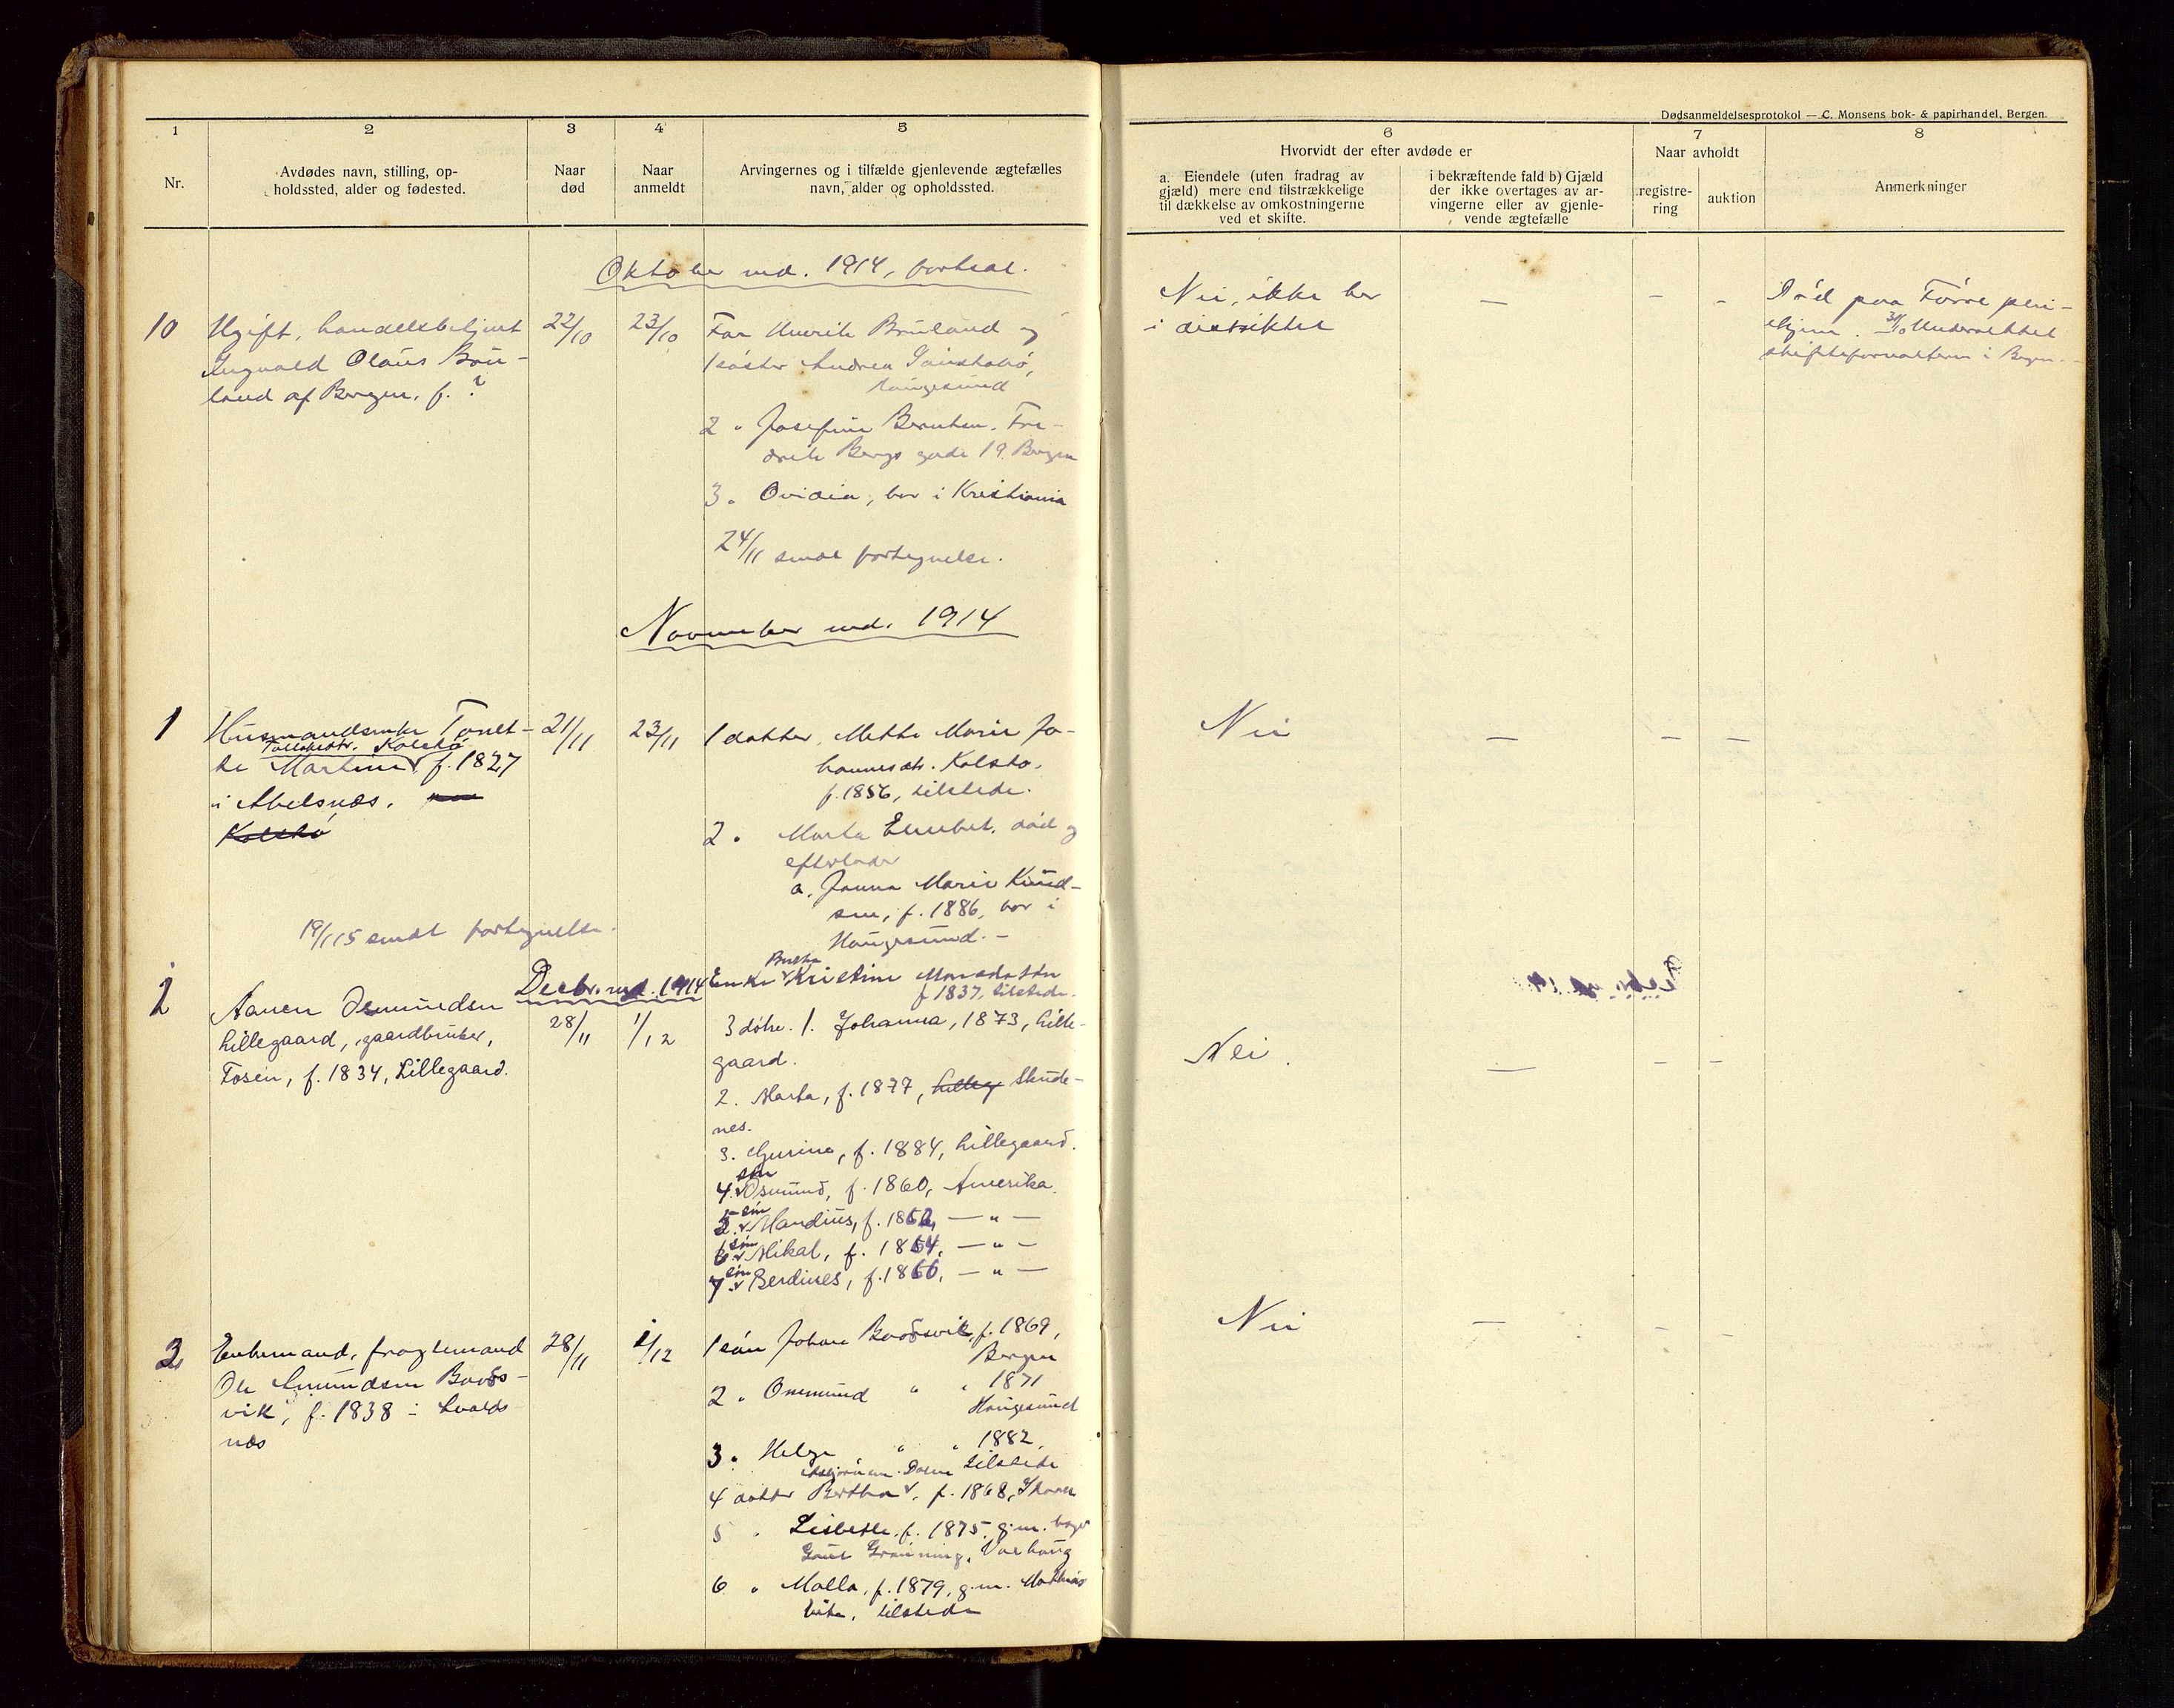 Dødsanmeldelsesprotokol — C. Monsens bok- & papirhandel, Bergen.
1
2
3
4
5
6
7
8
Nr.
Avdødes navn, stilling, op-
holdssted, alder og fødested.
Naar
død
Naar
anmeldt
Arvingernes og i tilfælde gjenlevende ægtefælles
navn, alder og opholdssted.
Hvorvidt der efter avdøde er
a. Eiendele (uten fradrag av
gjæld) mere end tilstrækkelige
til dækkelse av omkostningerne
ved et skifte.
i bekræftende fald b) Gjæld
der ikke overtages av ar-
vingerne eller av gjenle-
vende ægtefælle
Naar avholdt
registre-
ring
auktion
Anmerkninger
Oktober md. 1914, fortsat.
10
Ugift, handelsbetjent
Ingvald Olaus Brü-
land af Bergen, f. ?
22/10
23/10
Far Henrik Brüland og
1 søster Andrea
Haugesund
2 " Josefine Berntsen, Fre-
drik Bergs gade 19 Bergen
3 " Ovidia, bor i Kristiania
24/11 sendt fortegnelse.
Nei, ikke her
i distriktet
—
-
-
Død paa Førre plei-
ehjem. 31/10 Underrettet
skifteforvalteren i Bergen.
November md. 1914
1
Husmandsenke Tonet-
Kolstø
te Martine f. 1827
i Abelsnes.
Kolstø
21/11
23/11
1 datter, Mette Marie Jo-
hannesdtr. Kolstø,
f. 1856, tilstede.
2 " Marta Elisabet, død og
efterlader
a. Janna Marie Knud-
sen, f. 1886, bor i
Haugesund. -
19/1 15 sendt fortegnelse.
Nei
—
—
—
Decbr. md. 1914
1
Aanen Osmundsen
Lillegaard, gaardbruker,
Fosen, f. 1834, Lillegaard.
28/11
1/12
Berta
Enke Kristine Monsdatter
f 1837, tilstede.
3 døtre. 1. Johanna, 1873, Lille-
gaard.
2. Marta, f. 1877, Lilleg Skude-
nes.
3. Gurine, f. 1884, Lillegaard.
søn
4. Osmund, f. 1860, Amerika.
søn
5. Mandius, f. 1862, — " —
søn
6. Mikal, f. 1864, — " —
søn
7. Berdines, f. 1866, — " —
Nei.
—
—
—
2
Enkemand, fragtemand
Ole Amundsen Bods-
vik, f. 1838 i Avalds-
nes
28/11
1/12
1 søn Johan Bodsvik, f. 1869,
Bergen
2 " Ommund " " 1871
Haugesund
3 " Helge " " 1882,
tilstede
4 datter Bertha, f. 1868, Skaare
5 " Lisbeth, f. 1875, g.m.
6 " Malla, f. 1879, g.m. Mathias
tilstede
Nei
—
-
-